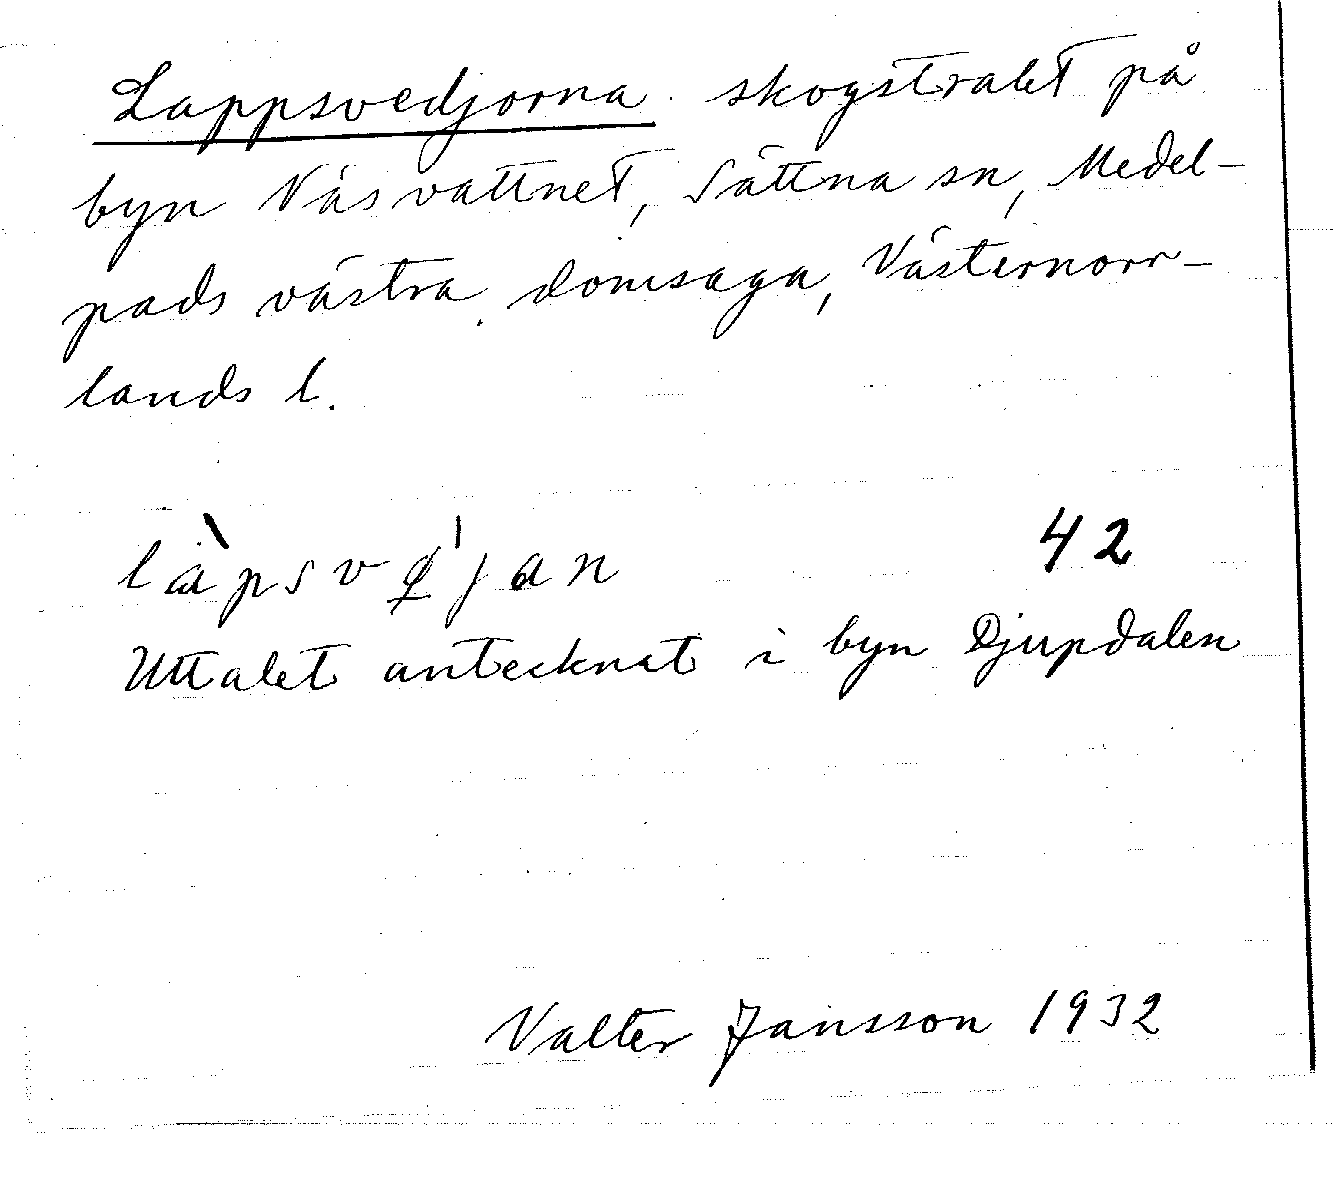 Lappsvedjorna skogstrakt på
byn Näsvattnet, Sättna sn, Medel-
pads västra domsaga, Västernorr-
lands l.
42
Uttalet antecknat i byn Djupdalen
Valter Jansson 1932